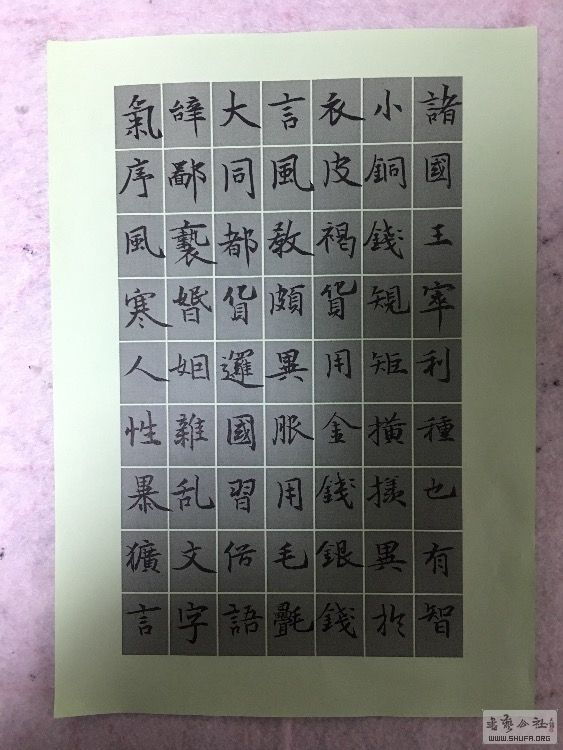 氣序風寒人性暴獷言
辤鄙褻婚姻雜乱文字
大同都貨邏國習俗語
言風教頗異服用毛㲲
衣皮褐貨用金錢銀錢
小銅錢規矩撗樣異扵
諸國王窣利種也有智
書藝公社
WWW.SHUFA.ORG